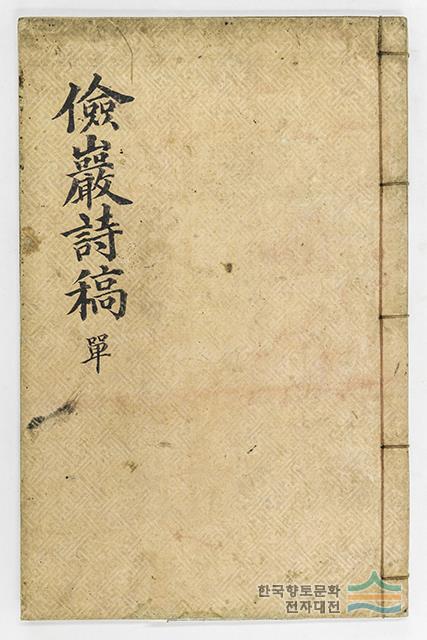 儉巖詩稿
單
한국향토문화
전자대전